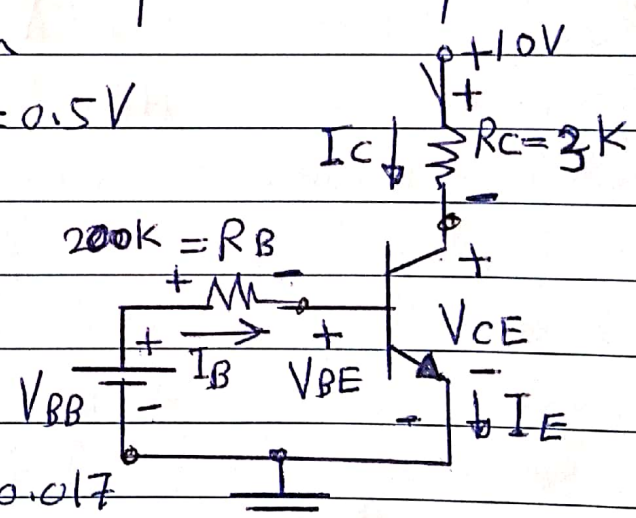 +10V
=0.5V
+
IC RC=3K
-
200K = RB
+ -
+
+ IB + VBE VCE
VBB - - - IE
0.017